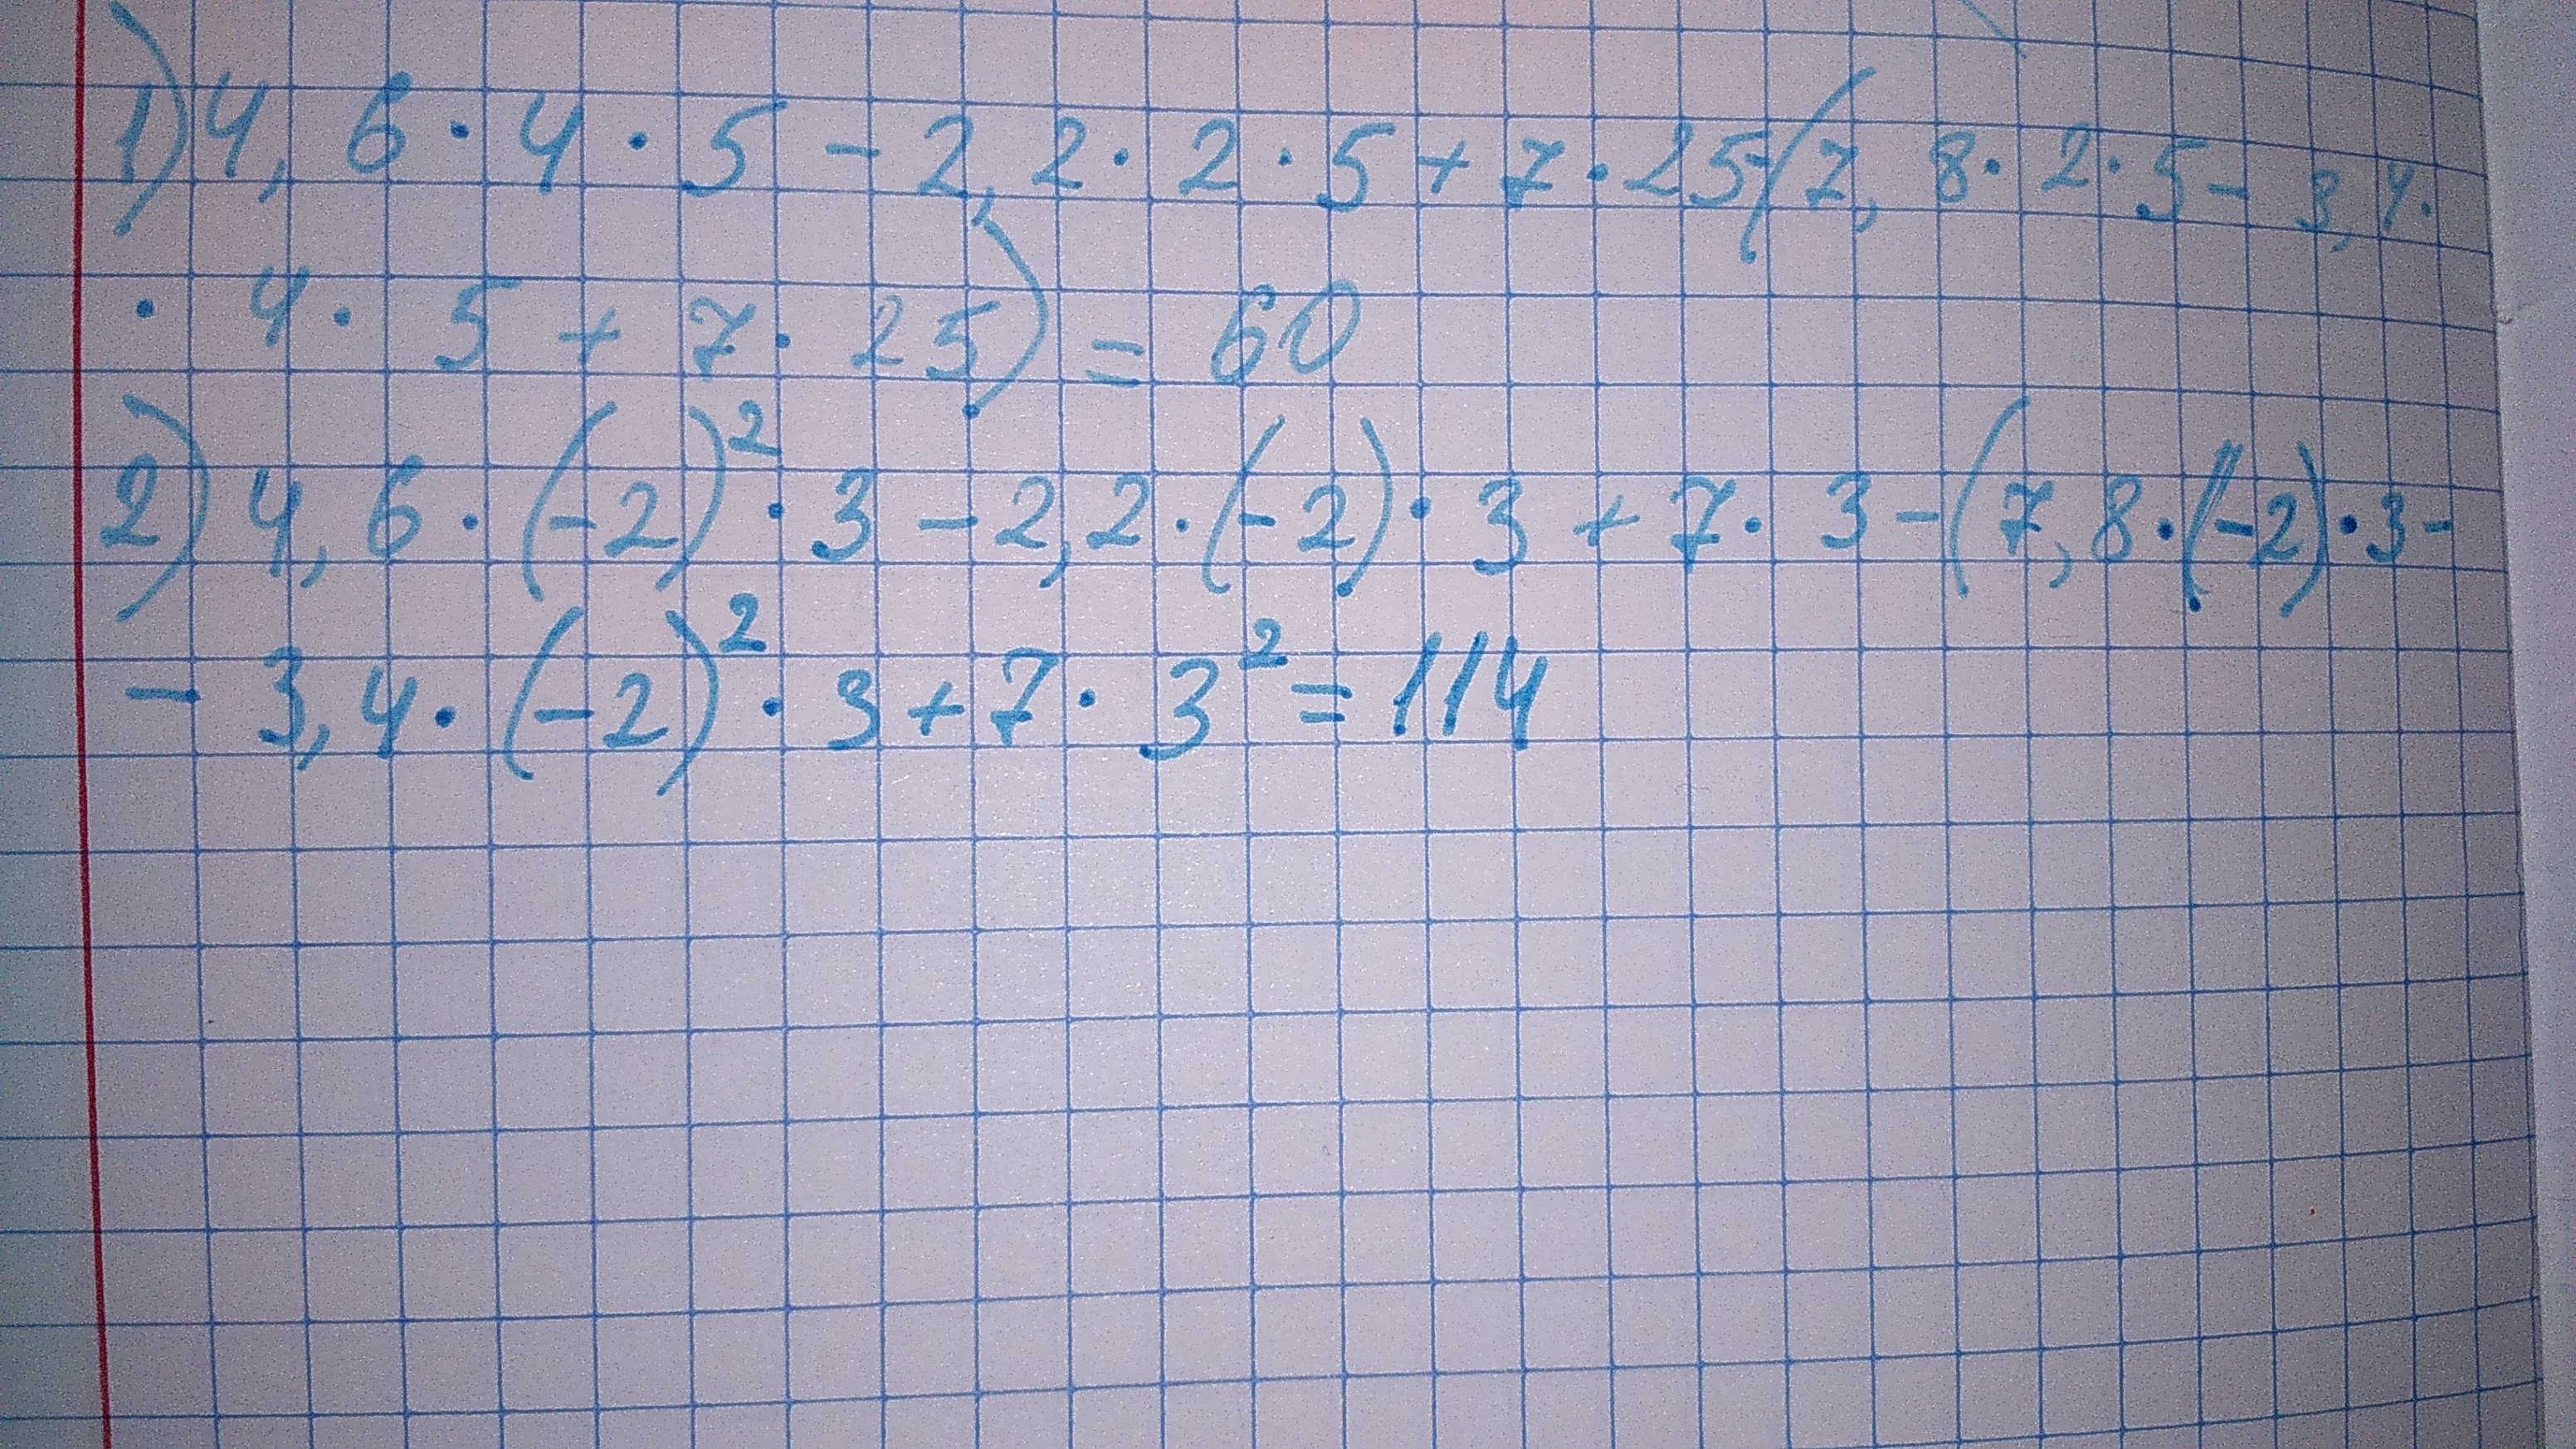 1) 4,6 · 4 · 5 - 2,2 · 2 · 5 + 7 · 25 - (7,8 · 2 · 5 - 3,4 ·
· 4 · 5 + 7 · 25) = 60
2) 4,6 · (-2)² · 3 - 2,2 · (-2) · 3 + 7 · 3 - (7,8 · (-2) · 3 -
- 3,4 · (-2)² · 3 + 7 · 3² = 114